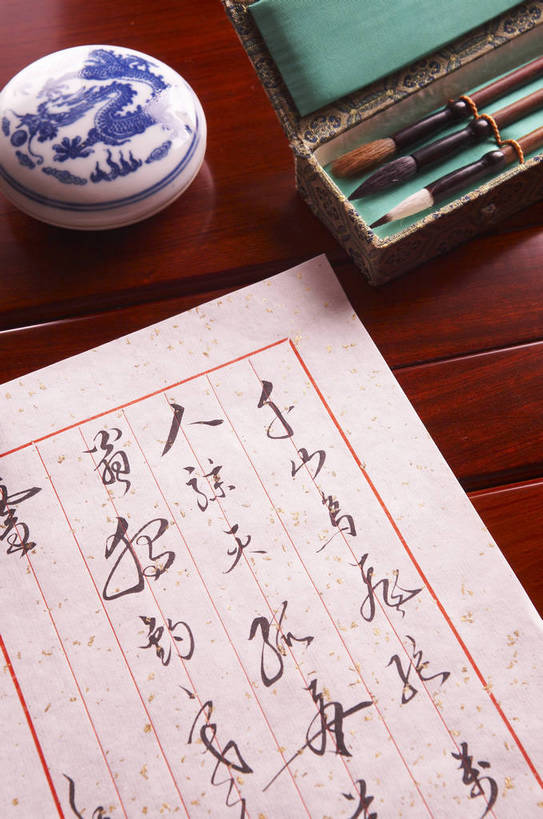 千山鳥飛絕萬
人踪灭孤舟
翁獨釣寒
雪